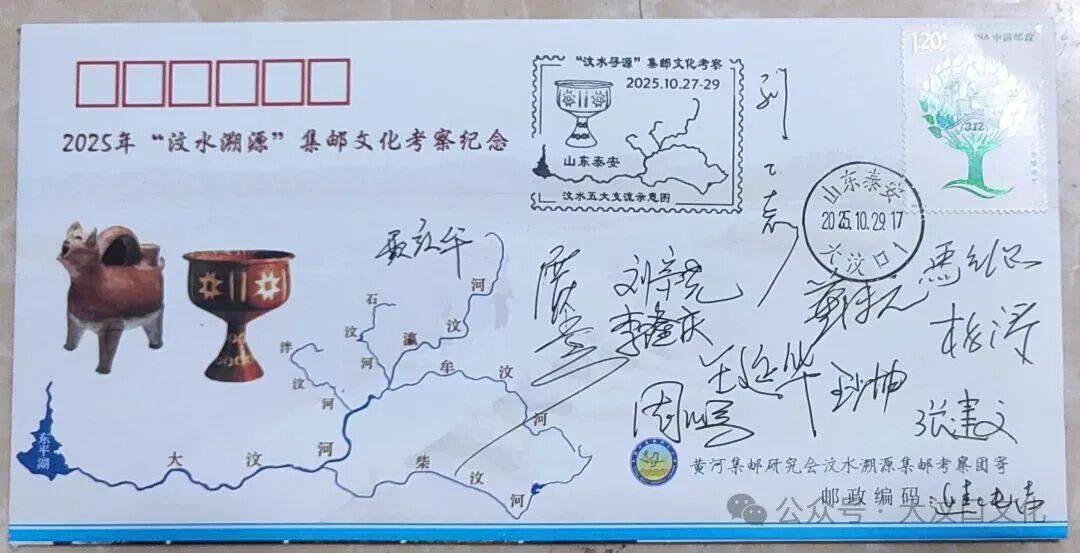 2025年“汶水溯源”集邮文化考察纪念
“汶水寻源”集邮文化考察
2025.10.27-29
山东泰安
汶水五大支流示意图
1.20元
CHINA 中国邮政
3.12
山东泰安
2025.10.29.17
大汶口
石汶河
瀛汶河
泮汶河
牟汶河
柴汶河
大汶河
东平湖
刘宗尧
李隆庆
周鹏
杨涛
张建文
黄河集邮研究会汶水溯源集邮考察团寄
邮政编码：
公众号·大汶口文化